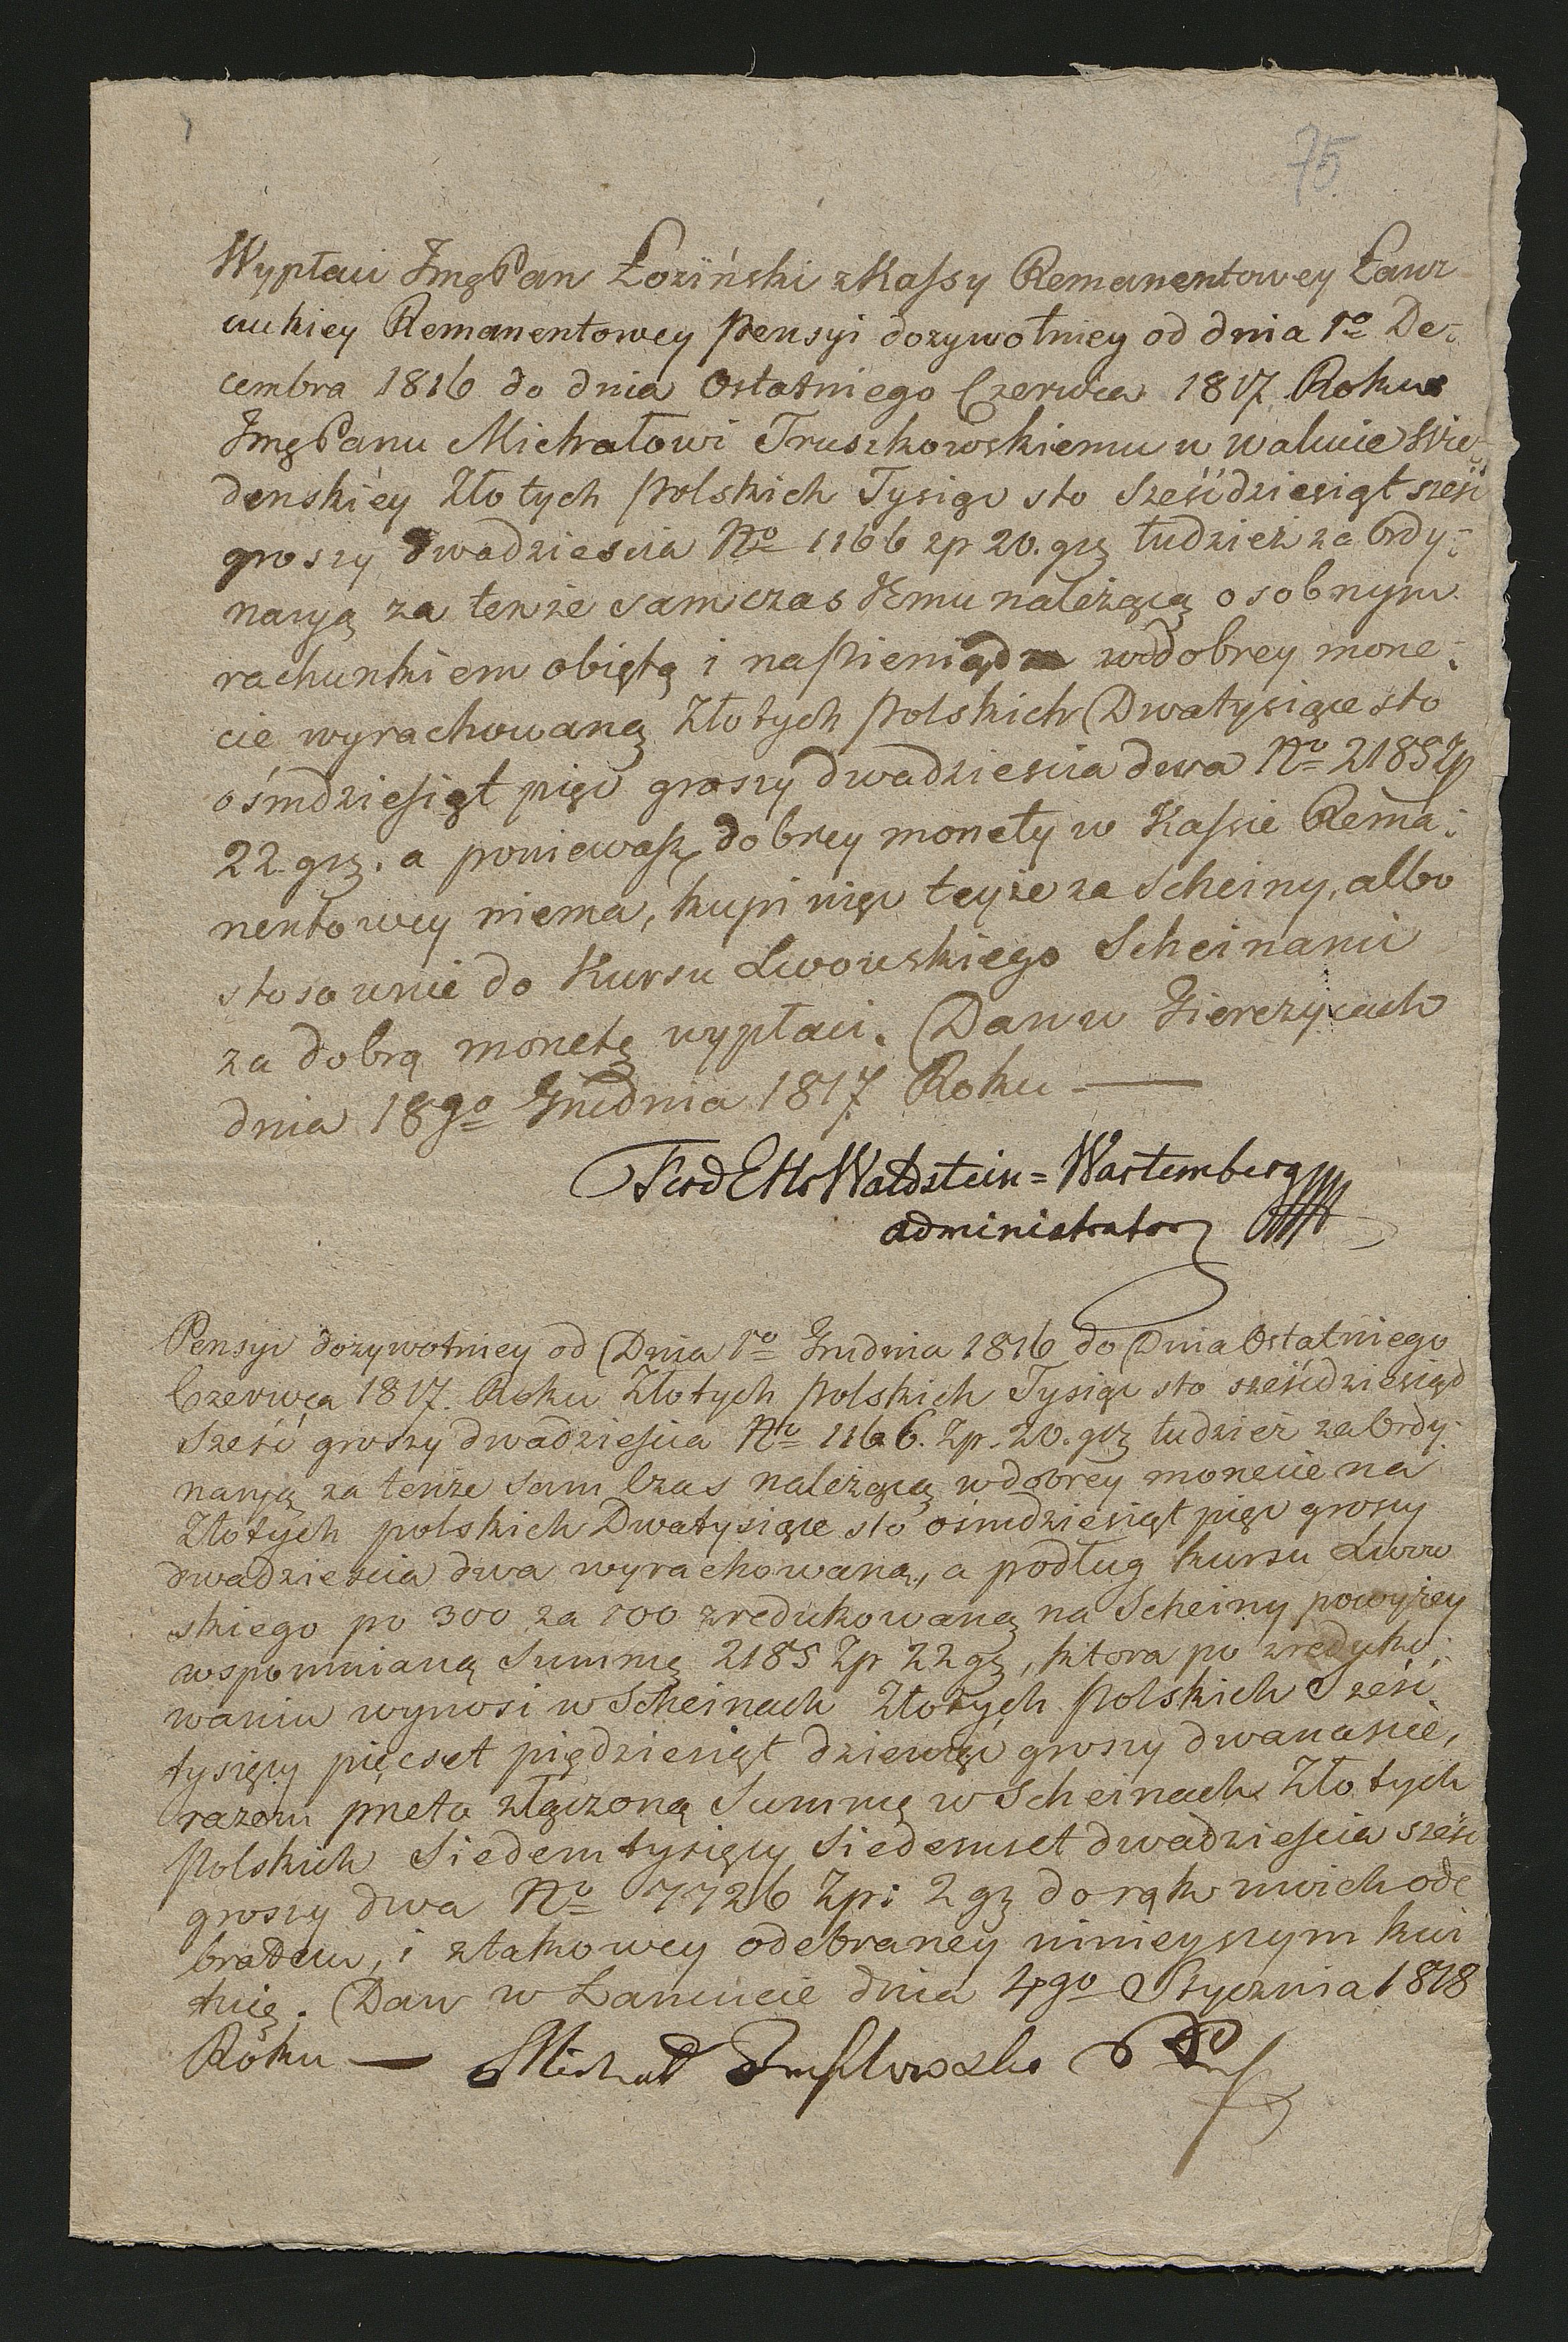 75
Wypłaci JmgPan Łoziński z Kassy Remanentowey Łanc
uckiey Remanentowey pensyi dozywotniey od dnia 1o De-
cembra 1816 do dnia Ostatniego Czerwca 1817 Roku
JmgPanu Michałowi Truszkowskiemu w walucie Wie-
denskiéy Złotych polskich Tysiąc sto Sześćdziesiąt sześć
groszy dwadziescia No 1166 zp 20. grz tudzież za Ordy-
naryą za tenże sam czas Jemu należącą osobnym
rachunkiem obiętą i na pieniądze w dobrey mone-
cie wyrachowaną Złotych polskich Dwatysiące sto
ośmdziesiąt pięć groszy dwadziescia dwa No 2185 Zp
22. grz. a poniewasz dobrey monety w Kassie Rema-
nentowey niema, kupi więc teyże za Scheiny, albo
stosownie do Kursu Lwowskiego Scheinami
za dobrą monetę wypłaci. Dan w Gierczycach
dnia 18go Grudnia 1817 Roku —
Ferd Waldstein=Wartemberg
administrator
Pensyi dozywotniey od Dnia 1o Grudnia 1816 do Dnia Ostatniego
Czerwca 1817. Roku Złotych polskich Tysiąc sto sześćdziesiąd
Sześć groszy dwadziescia No 1166. Zp. 20. grz tudzież za Ordy-
naryą za tenże sam Czas należącą w dobrey monecie na
Złotych polskich Dwatysiące sto ośmdziesiąt pięć groszy
dwadziescia dwa wyrachowaną, a podług kursu Lwow
skiego po 300 za 100 zredukowaną na Scheiny powyżey
wspomnianą Summę 2185 Zp 22 gz, ktora po zreduko-
waniu wynosi w Scheinach Złotych polskich Sześć
tysięcy pięcset piędziesiąt dziewięć groszy dwanascie,
razem pneto złączoną Summę w Scheinach Złotych
polskich Siedem tysięcy Siedemset dwadziescia sześć
groszy dwa No 7726 Zp: 2 gz do rąk moich ode
brałem, i ztakowey odebraney ninieyszym kwi
tuię. Dan w Łancucie dnia 4go Stycznia 1818
Roku — Michał Truszkowski